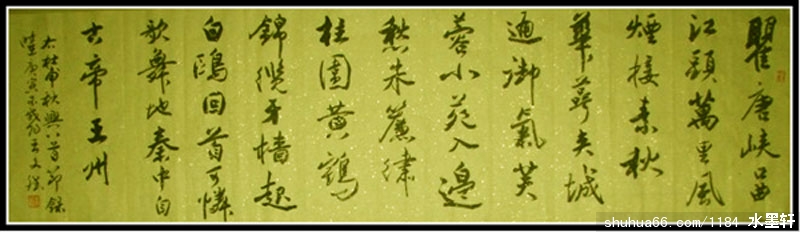 瞿唐峽口曲
江頭萬里風
煙接素秋
華萼夾城
通御氣芙
蓉小苑入邊
愁朱簾繡
柱圍黃鶴
錦纜牙檣起
白鷗回首可憐
歌舞地秦中自
古帝王州
右杜甫秋興八首節錄
庚寅
shuhua66.com/1184 水墨轩